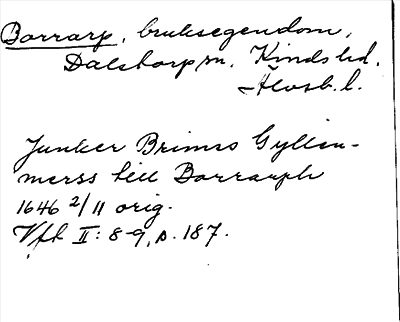 Borrarp, bruksegendom,
Dalstorp sn, Kinds hd.
Älvsb. l.
Junker Brimss Gyllen-
merss till Borrarph
1646 2/11 orig.
Vft II: 8-9, s. 187.